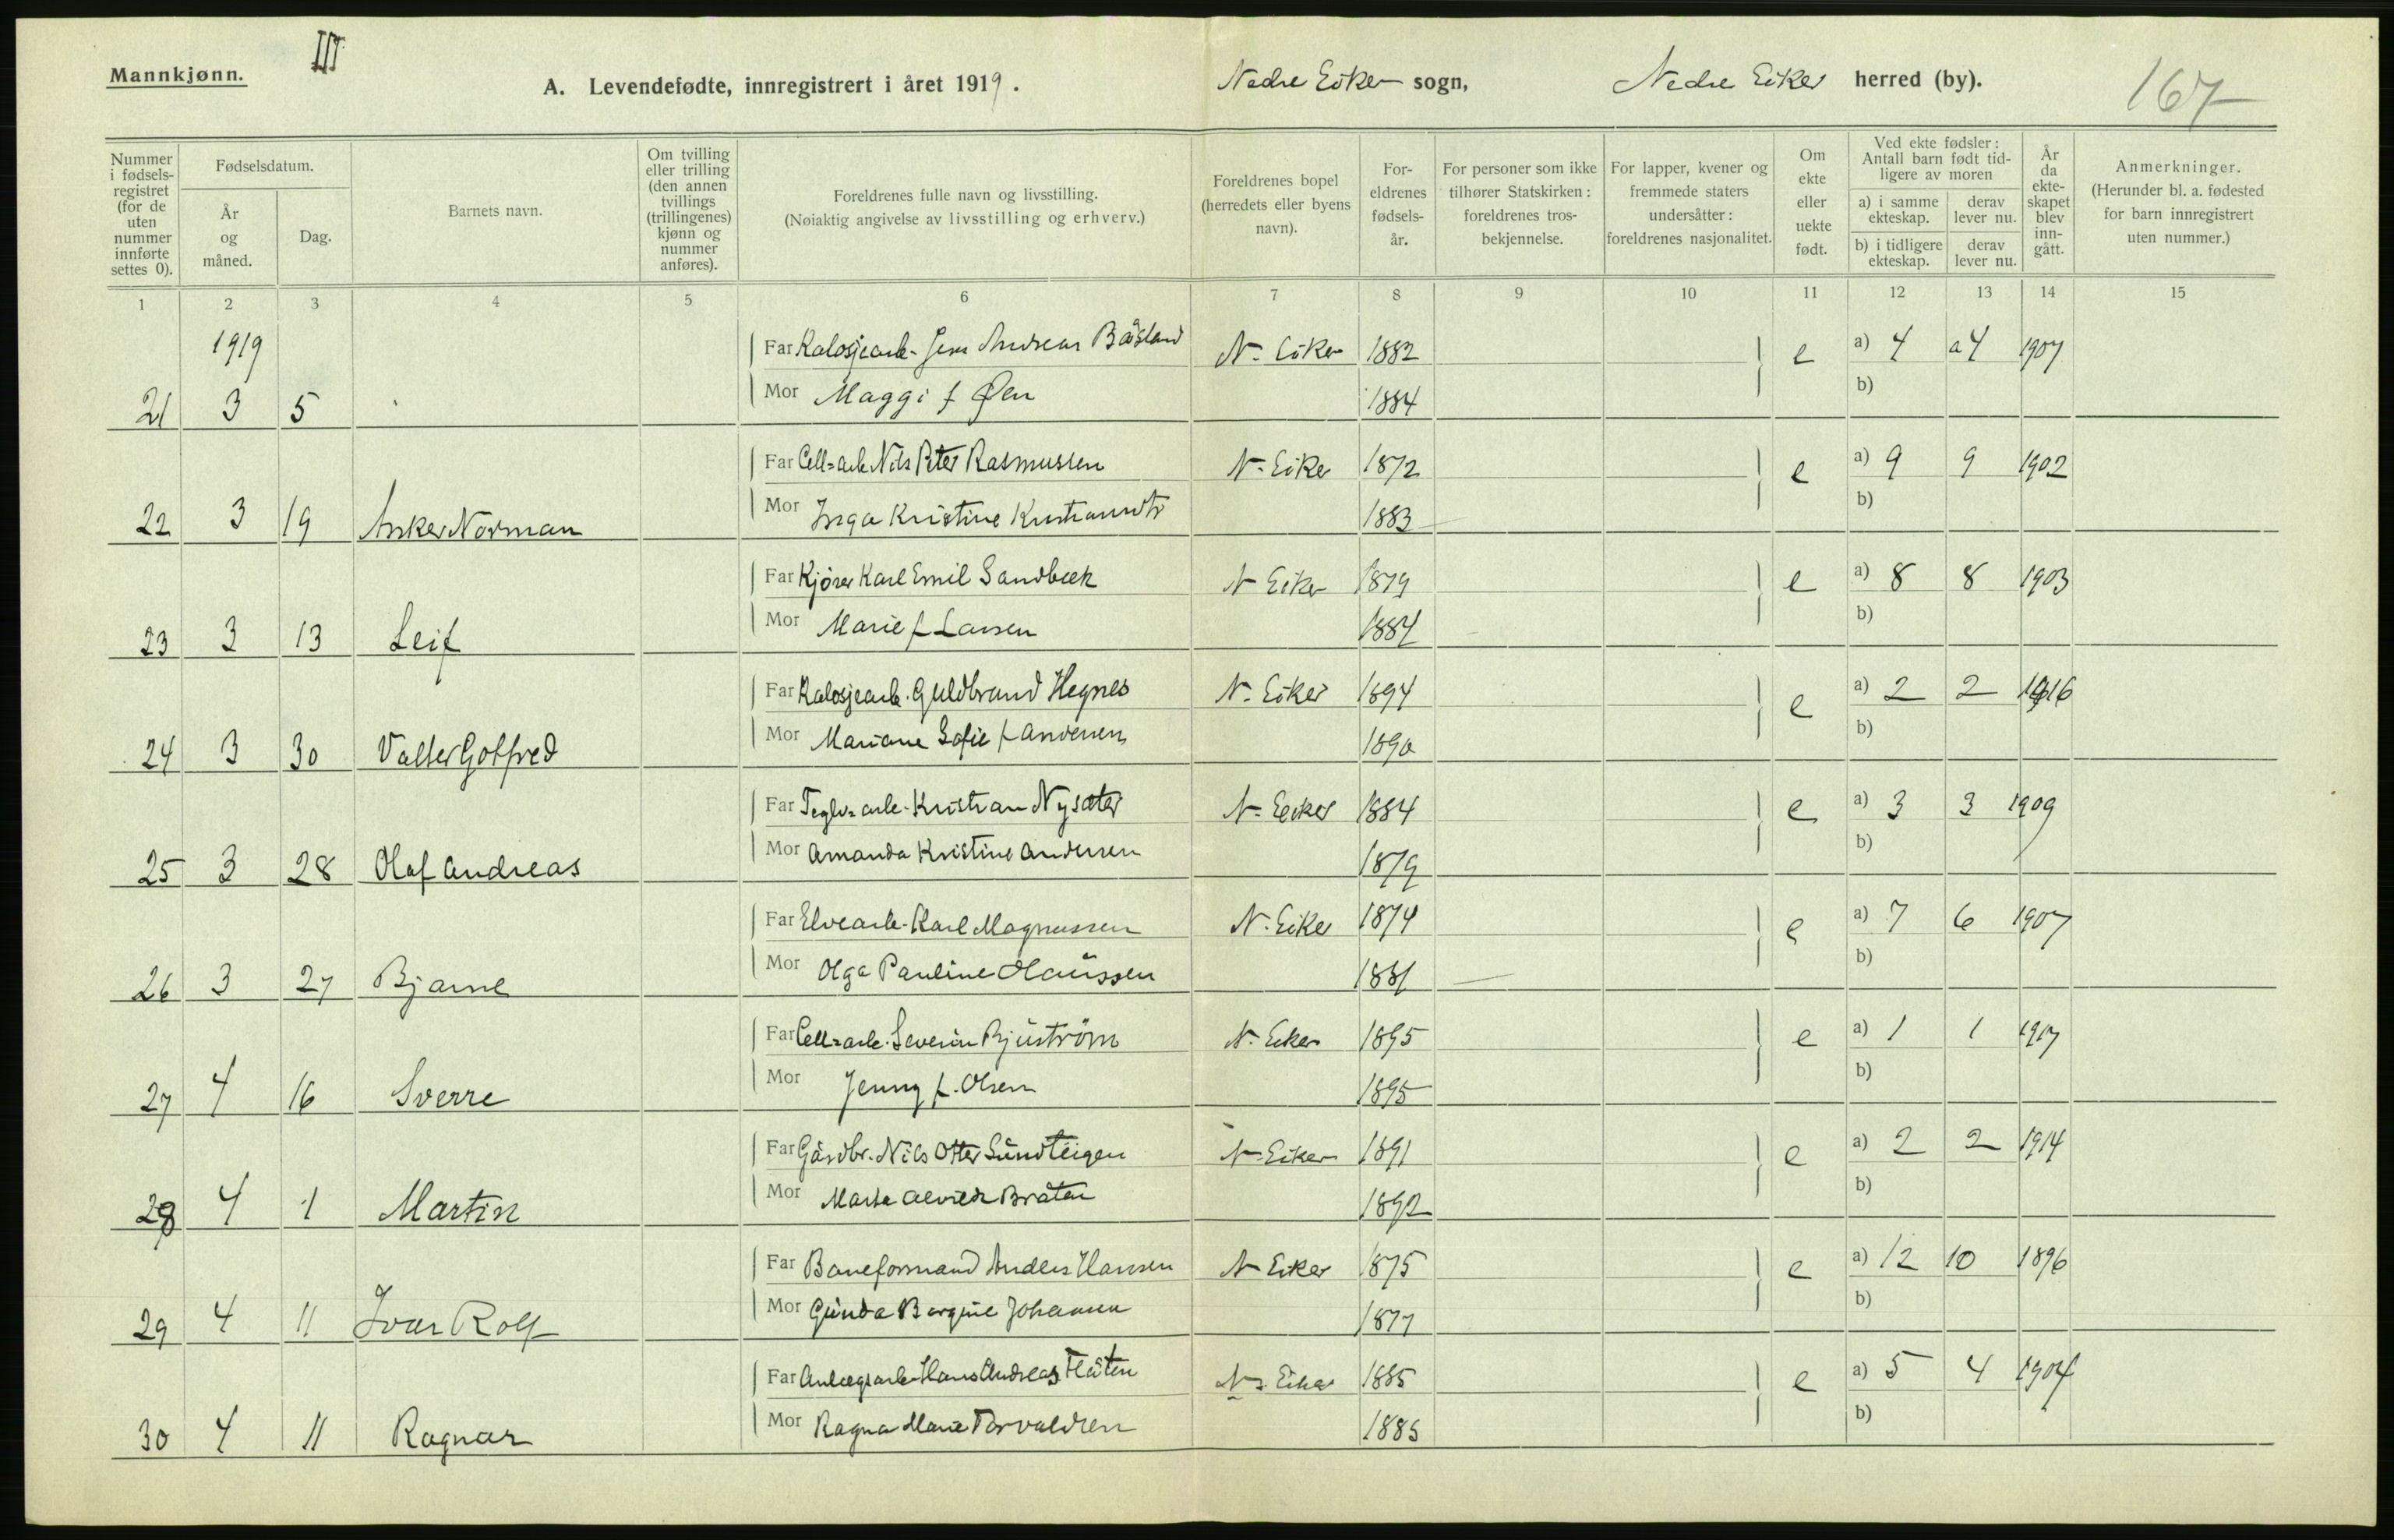 Mannkjønn. III
A. Levendefødte, innregistrert i året 1919. Nedre Eiker sogn, Nedre Eiker herred (by). 167
Nummer i fødselsregistret (for de uten nummer innførte settes 0). Fødselsdatum. År og måned. Dag. Barnets navn. Om tvilling eller trilling (den annen tvillings (trillingenes) kjønn og nummer anføres). Foreldrenes fulle navn og livsstilling. (Nøiaktig angivelse av livsstilling og erhverv.) Foreldrenes bopel (herredets eller byens navn). Foreldrenes fødselsår. For personer som ikke tilhører Statskirken: foreldrenes trosbekjennelse. For lapper, kvener og fremmede staters undersåtter: foreldrenes nasjonalitet. Om ekte eller uekte født. Ved ekte fødsler: Antall barn født tidligere av moren a) i samme ekteskap. derav lever nu. b) i tidligere ekteskap. derav lever nu. År da ekteskapet blev inngått. Anmerkninger. (Herunder bl. a. fødested for barn innregistrert uten nummer.)
1 2 3 4 5 6 7 8 9 10 11 12 13 14 15
1919 Far Kalosjearb. Jens Andreas Båsland N. Eiker 1882 e a) 4 a4 1907
21 3 5 Mor Maggi f Øen 1884 b)
Far Cell=arb Nils Peter Rasmussen N. Eiker 1872 e a) 9 9 1902
22 3 19 Anker Norman Mor Inga Kristine Kristiansdtr 1883 b)
Far Kjører Karl Emil Sandbæk N Eiker 1879 e a) 8 8 1903
23 3 13 Leif Mor Marie f Larsen 1884 b)
Far Kalosjearb. Guldbrand Hegnes N. Eiker 1894 e a) 2 2 1916
24 3 30 Valter Gotfred Mor Mariane Sofie f Andersen 1890 b)
Far Teglv=arb. Kristian Nysæter N. Eeker 1884 e a) 3 3 1909
25 3 28 Olaf Andreas Mor Amanda Kristine Andersen 1879 b)
Far Elvearb. Karl Magnussen N. Eiker 1874 e a) 7 6 1907
26 3 27 Bjarne Mor Olga Pauline Olaussen 1881 b)
Far Cell=arb. Severin Bjuström N. Eiker 1895 e a) 1 1 1917
27 4 16 Sverre Mor Jenny f. Olsen 1895 b)
Far Gårdbr. Nils Otter Sundteigen N Eiker 1891 e a) 2 2 1914
28 4 1 Martin Mor Marta Alvilde Bråten 1892 b)
Far Baneformand Anders Hansen N Eiker 1875 e a) 12 10 1896
29 4 11 Ivar Rolf Mor Gunda Bergine Johansen 1877 b)
Far Anlægsarb. Hans Andreas Flåten N. Eiker 1885 e a) 5 4 1904
30 4 11 Ragnar Mor Ragna Marie Torvaldsen 1885 b)